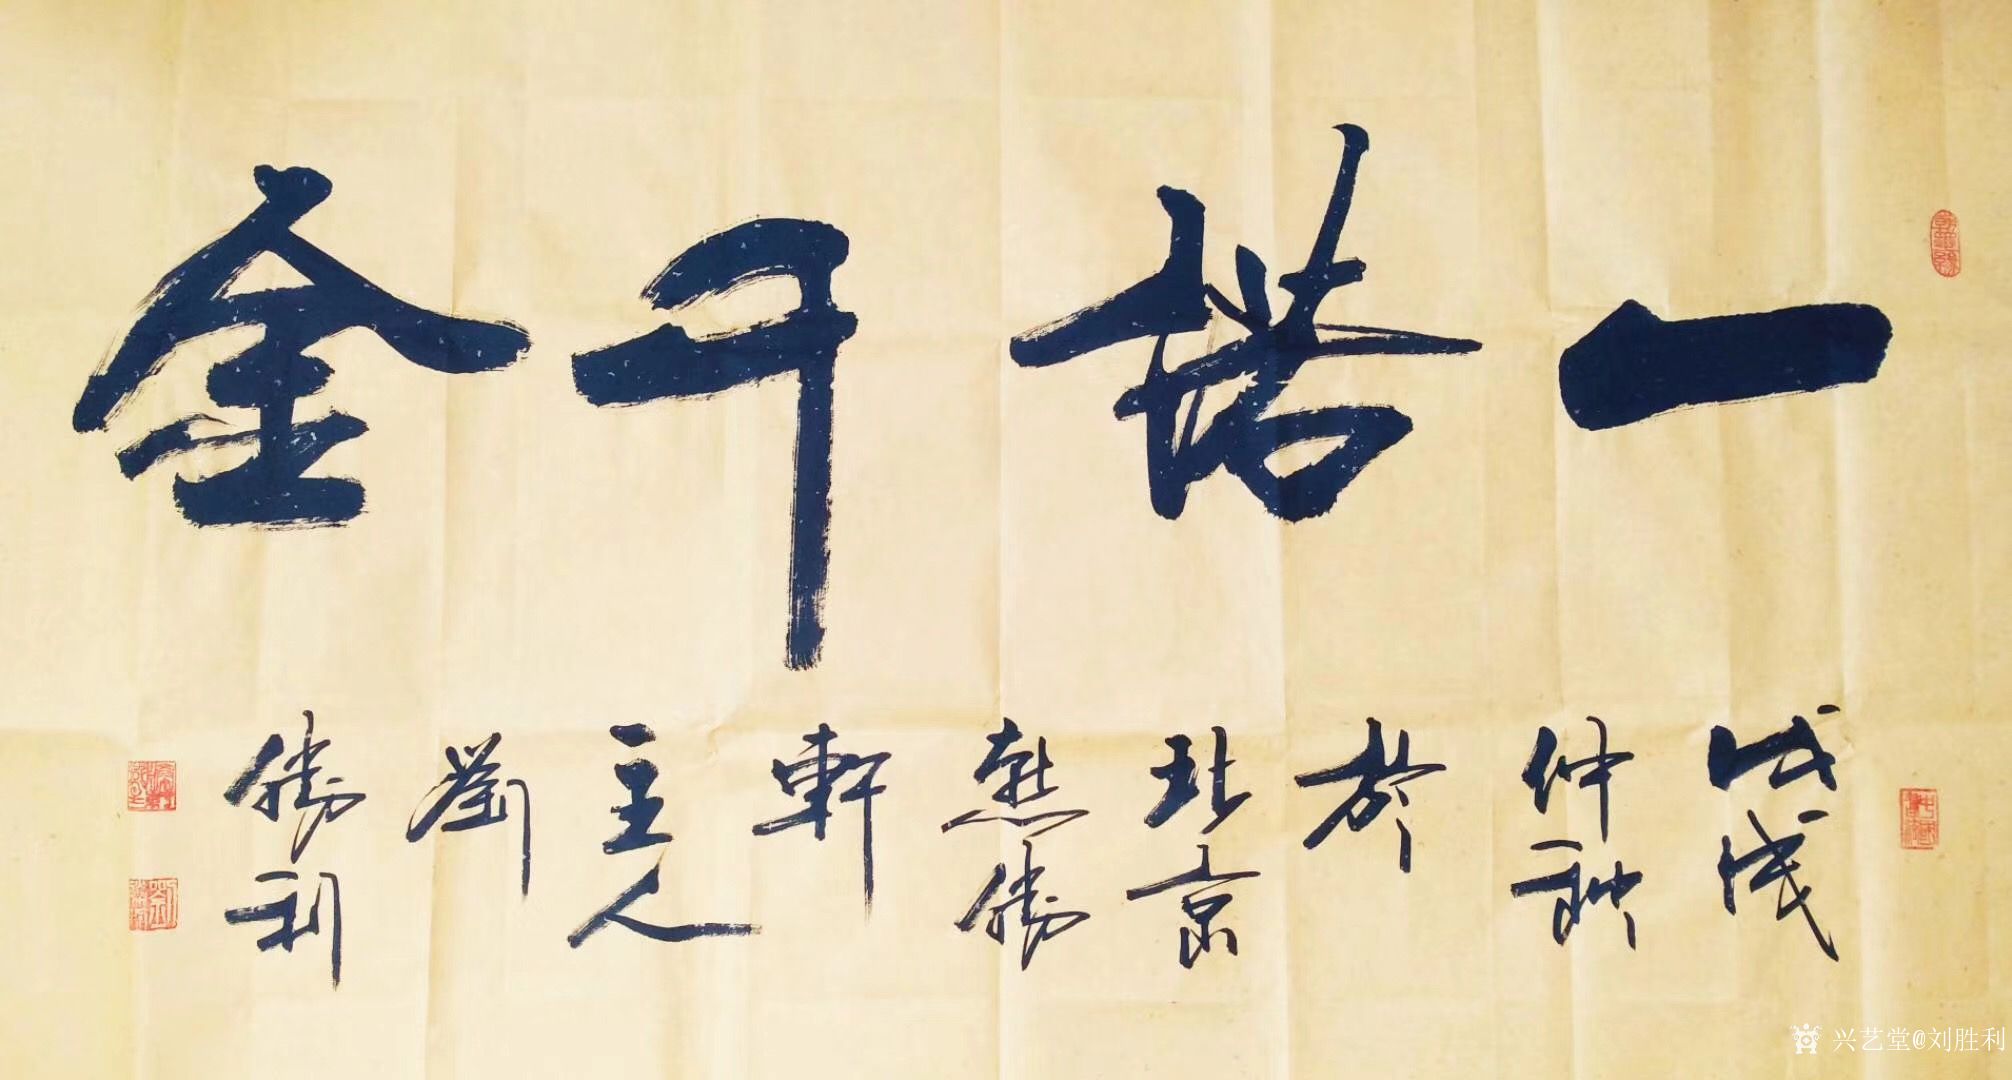 一諾千金
戊戌
仲秋
於
北京
勝
軒
主人
劉
勝利
兴艺堂@刘胜利